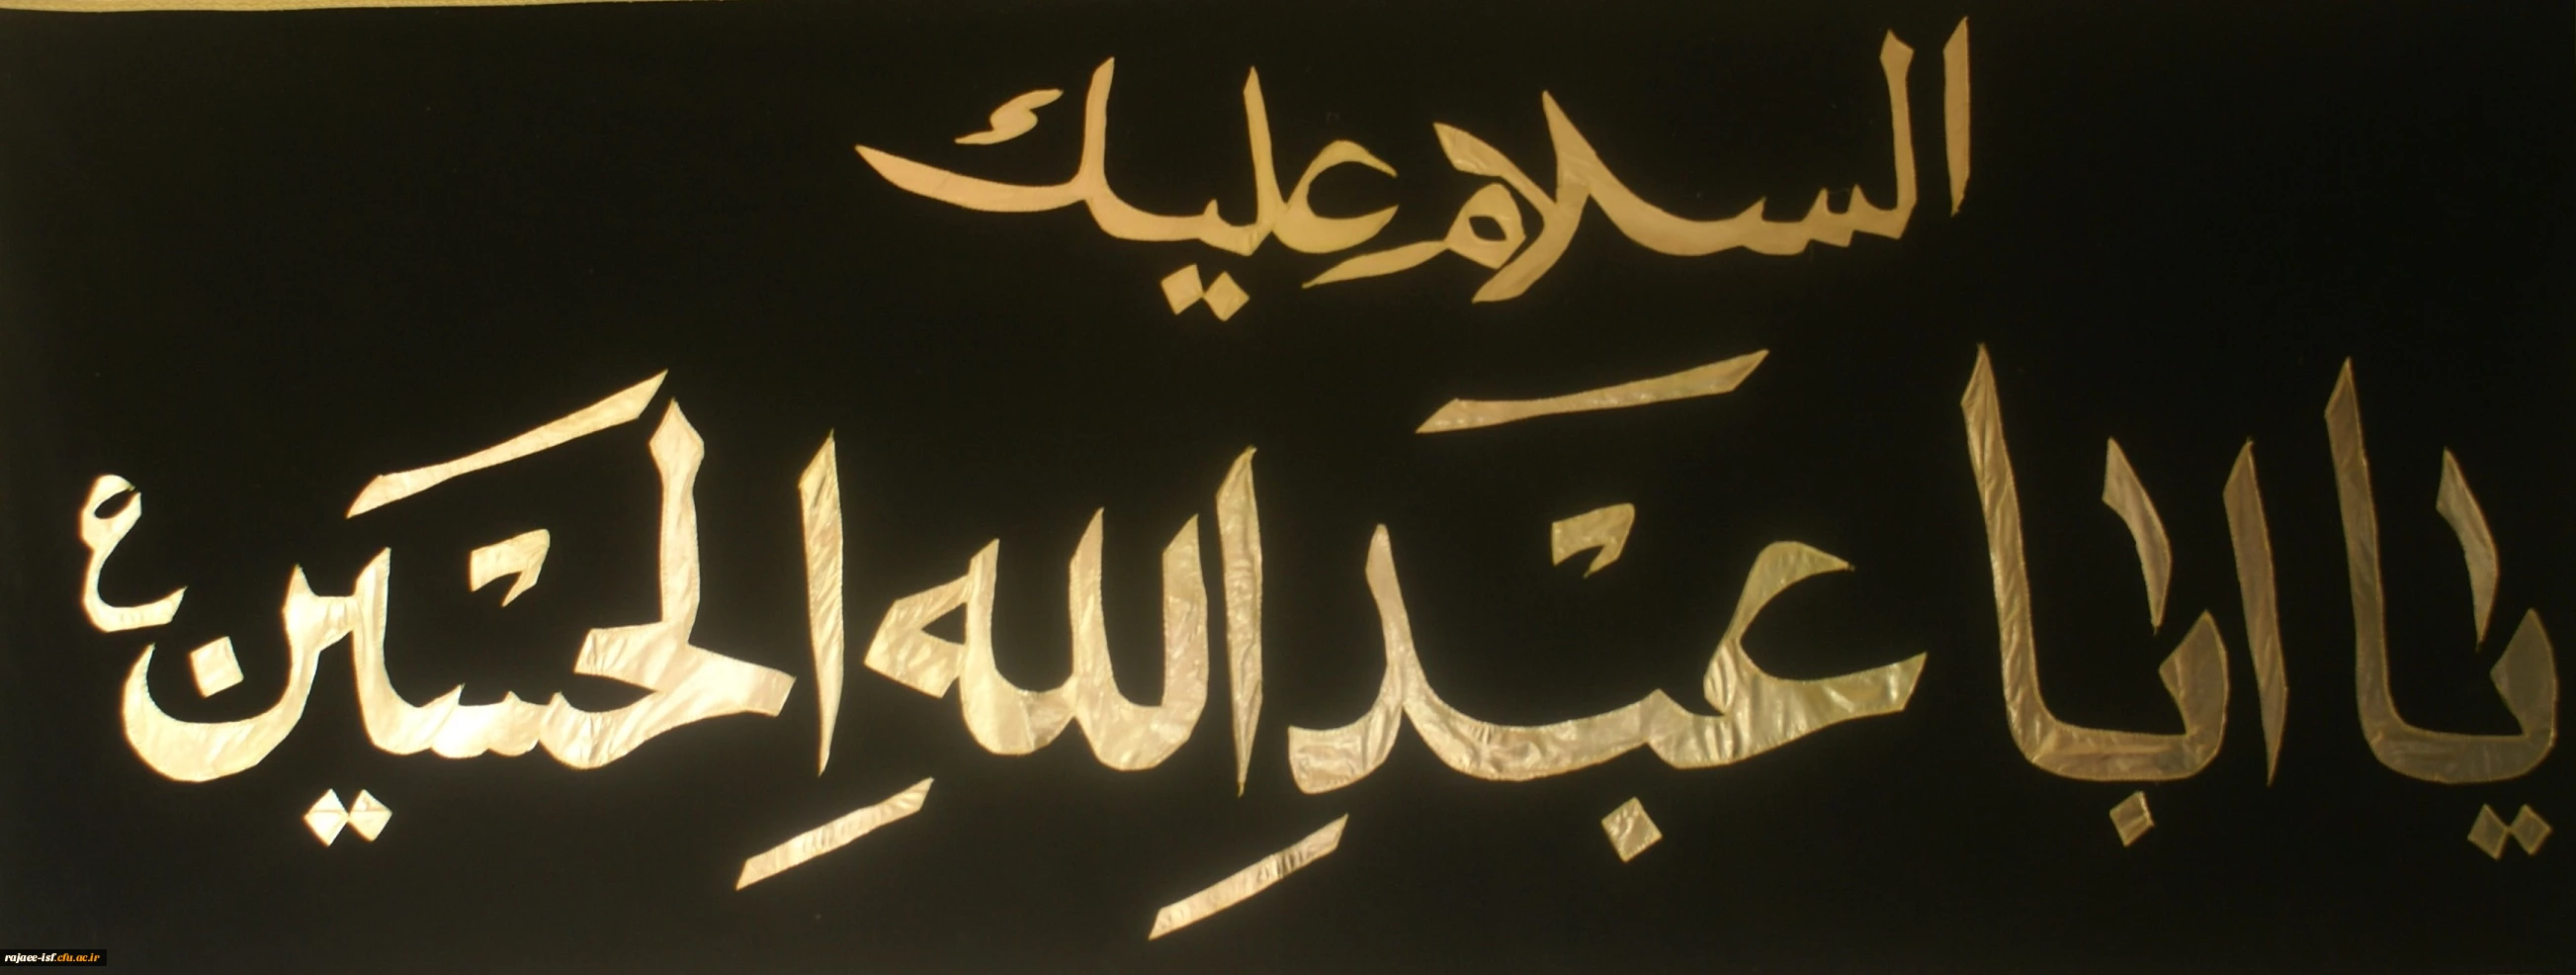 السلام عليك
يا ابا عبدِ اللهِ الحسين ع
rajaee-isf.cfu.ac.ir